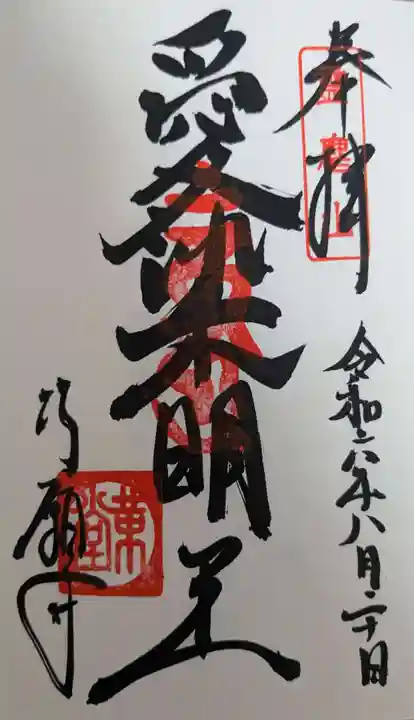 奉拝
令和六年八月二十日
愛染明王
行願寺
革堂